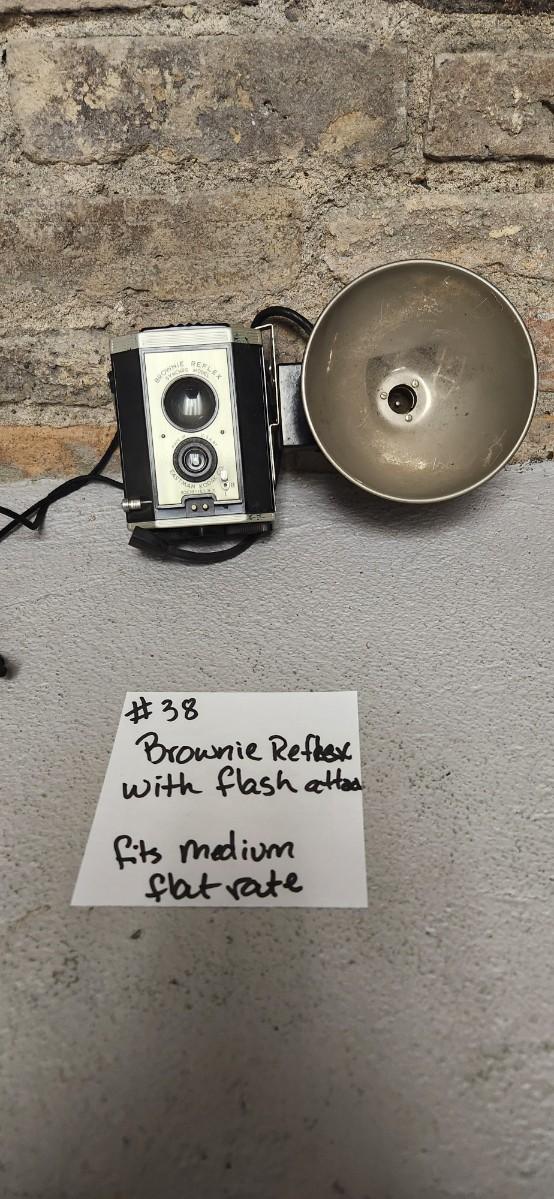 BROWNIE REFLEX
SYNCHRO MODEL
EASTMAN KODAK
#38
Brownie Reflex
with flash attac
fits medium
flat rate